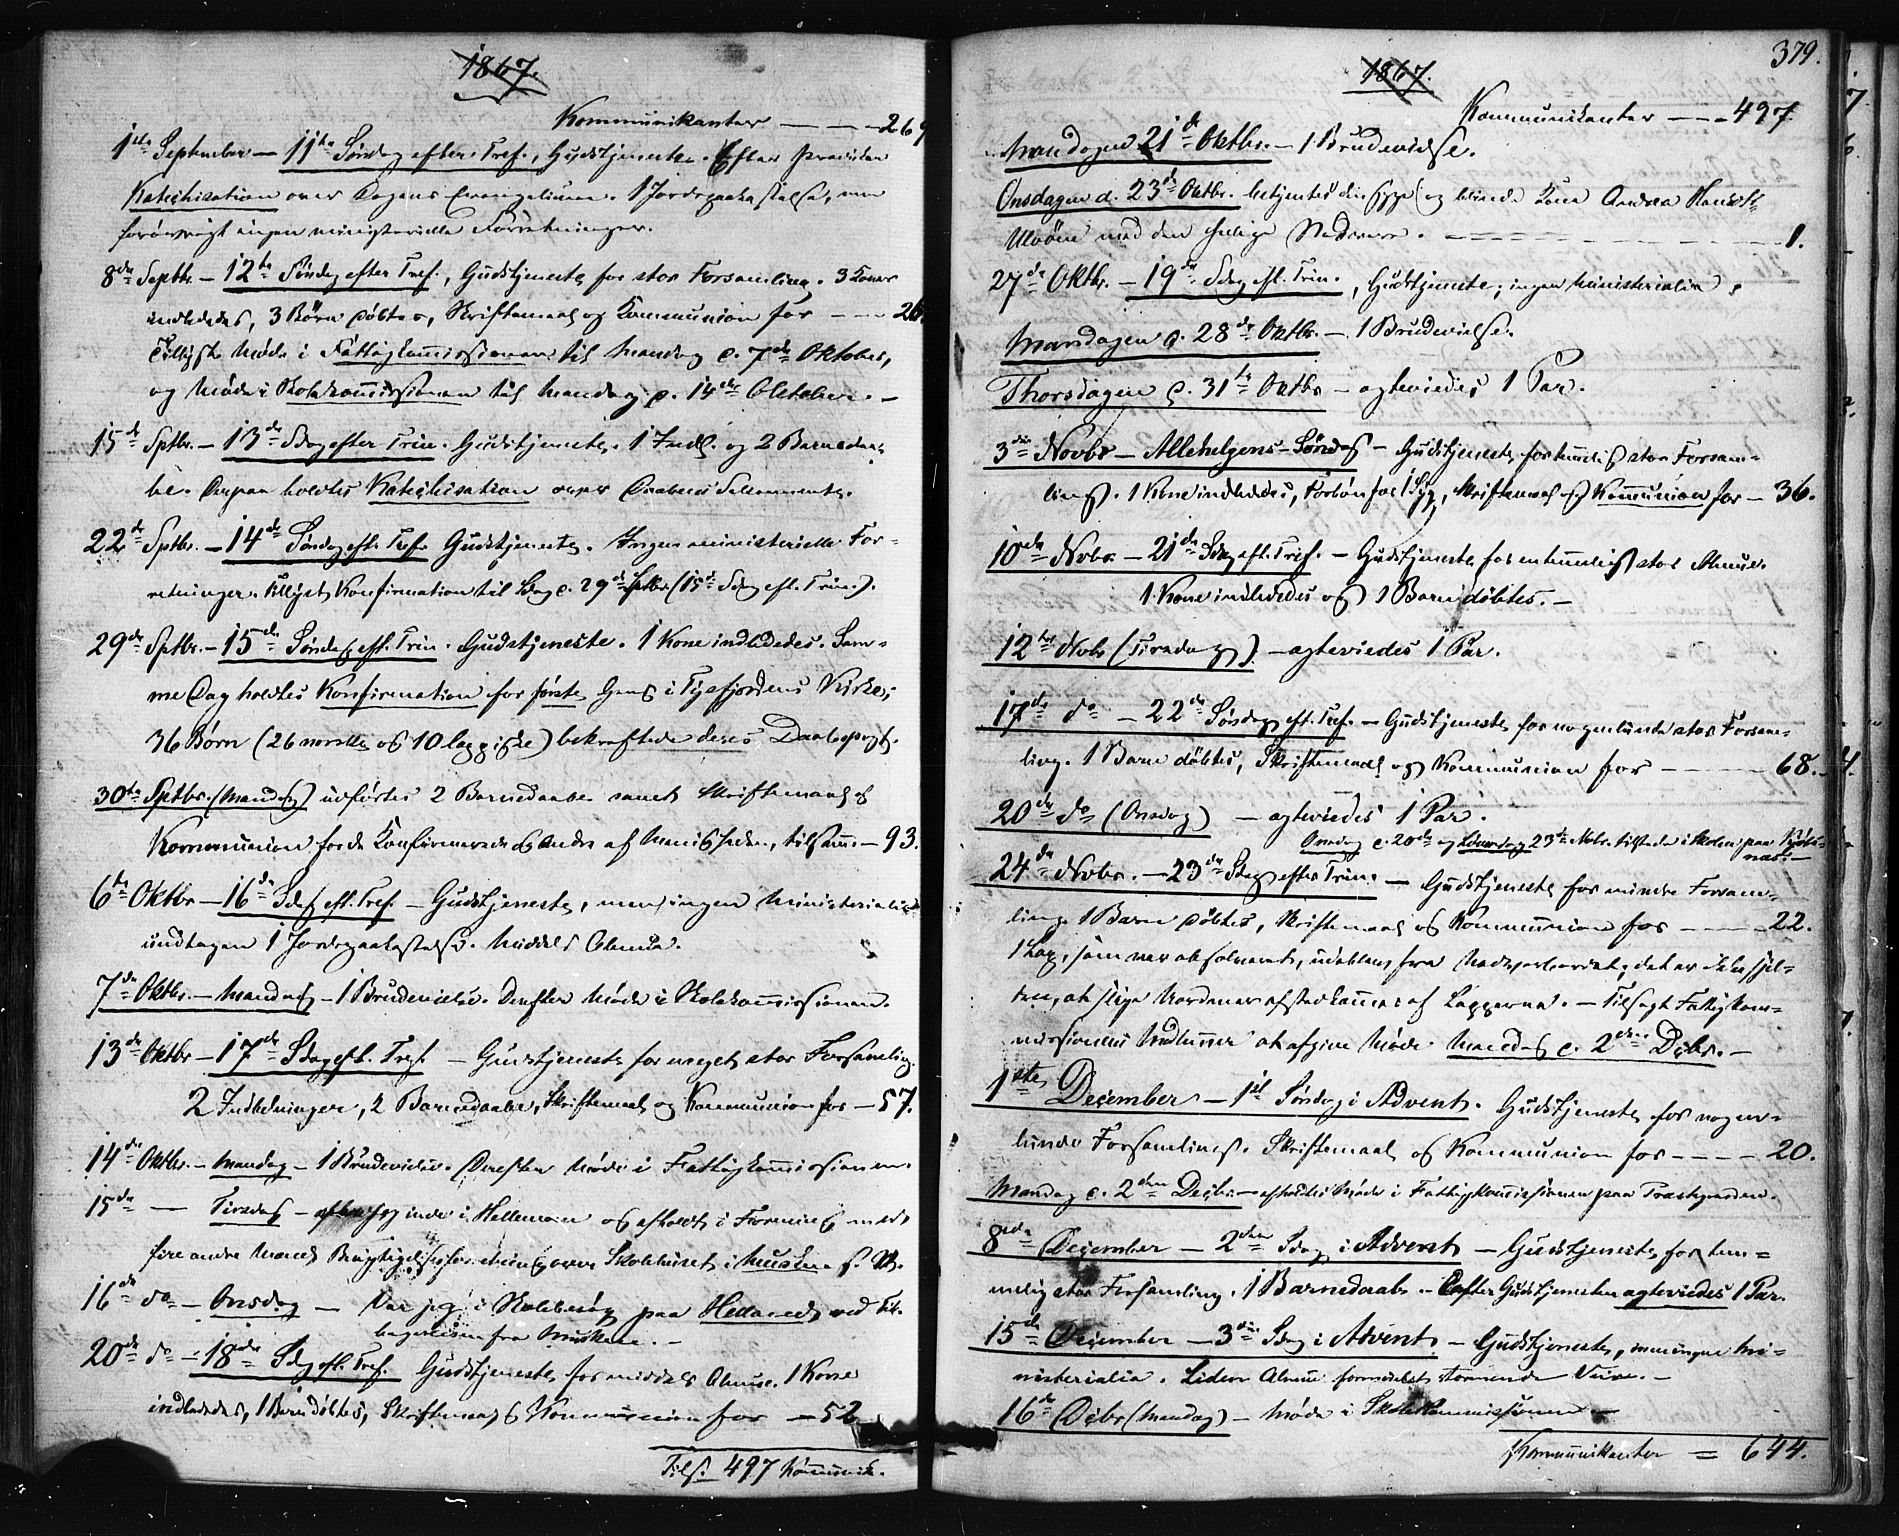 1867.
Kommunikanter — — — 269
1ste September — 11te Søndag efter Tref., Gudstjeneste. Efter Præsten
Katechisation over Dagens Evangelium. 1 Jordpaakastelse, men
forøvrigt ingen ministerielle Forretninger.
8de Septbr. — 12te Søndag efter Tref., Gudstjeneste for stor Forsamling. 3 Koner
indlededes, 3 Børn døbtes, Skriftemaal og Kommunion for — — 26
Tillyst Møde i Fattigkommissionen til Mandag d. 7de Oktober,
og Møde i Skolekommissionen til Mandag d. 14de Oktober. —
15de Sptbr. — 13de Sdag efter Trin. Gudstjeneste. 1 Indl. og 2 Barnedaa-
be. Derpaa holdtes Katechisation over Daabens Sakramente.
22de Sptbr. — 14de Søndag eft. Tref. Gudstjeneste. Ingen ministerielle For-
retninger. Tillyst Konfirmation til Sdag d. 29de Sptbr. (15de Sdag eft. Trin.).
29de Sptbr. — 15de Søndag eft. Trin. Gudstjeneste. 1 Kone indlededes. Sam-
me Dag holdtes Konfirmation for første Gang i Tysfjordens Kirke;
36 Børn (26 norske og 10 lappiske) bekræftede deres Daabspagt.
30te Sptbr. (Mandag) udførtes 2 Barnedaabe samt Skriftemaal og
Kommunion for de Konfirmerede og Andre af Menigheden, tilsamm. — 93.
6te Oktbr — 16de Sdag eft. Tref. — Gudstjeneste, men ingen Ministerialia
undtagen 1 Jordpaakastelse. Middels Almue.
7de Oktbr. — Mandag — 1 Brudevielse. Derefter Møde i Skolekommissionen.
13de Oktbr — 17de Sdag eft. Tref. — Gudstjeneste for meget stor Forsamling.
2 Indledninger, 2 Barnedaabe, Skriftemaal og Kommunion for — 57.
14de Oktbr. — Mandag — 1 Brudevielse. Derefter Møde i Fattigkommissionen.
15de — Tirsdag — inde i Hellemoen og afholdt i Forening med
fire andre Mænd Besigtigelsesforretning over Skolehuset i Musken
16de do — Onsdag — Var jeg i Skolebesøg paa Helland ved Til-
bagereisen fra Musken. —
20de do — 18de Sdag eft. Tref. Gudstjeneste for middels Almue. 1 Kone
indlededes, 1 Barn døbtes, Skriftemaal og Kommunion for — 52
Tils. 497 Kommunik.
379.
1867.
Kommunikanter — — 497
Mandagen 21de Oktbr. — 1 Brudevielse.
Onsdagen d. 23de Oktbr. betjentes den syge og blinde Kone Andrea
Ulvøen med den hellige Nadvere. — — — 1.
27de Oktbr. — 19de Sdag eft. Trin., Gudstjeneste; ingen Ministerialia.
Mandagen d. 28de Oktbr. — 1 Brudevielse.
Thorsdagen d. 31te Oktbr — ægteviedes 1 Par.
3die Novbr — Allehelgens-Søndag — Gudstjeneste for temmelig stor Forsam-
ling. 1 Kone indlededes, Forbøn for 1 Syg, Skriftemaal og Kommunion for — 36.
10de Novbr. — 21de Sdag eft. Tref. — Gudstjeneste for en temmelig stor Almue.
1 Kone indlededes og 1 Barn døbtes. —
12te Novbr (Tirsdag) — ægteviedes 1 Par.
17de do — 22de Søndag eft. Tref. — Gudstjeneste for nogenlunde stor Forsam-
ling. 1 Barn døbtes, Skriftemaal og Kommunion for — — — 68.
20de do (Onsdag) — ægteviedes 1 Par.
Onsdag d. 20de og Løverdag 23de Novbr. tilstede i Skolen paa Kjøbs-
næs. —
24de Novbr. — 23de Sdag efter Trin. — Gudstjeneste for mindre Forsam-
ling. 1 Barn døbtes, Skriftemaal og Kommunion for — — — 22.
1 Lap, som var absolveret, udeblev fra Nadverbordet; det er ikke sjel-
dent, at slige Uordener afstedkommes af Lapperne. — Tilsagt Fattigkom-
missionens Medlemmer at afgive Møde Mandag d. 2den Decbr. —
1ste December — 1ste Søndag i Advent. Gudstjeneste for nogen-
lunde Forsamling. Skriftemaal og Kommunion for — — — 20.
Mandag d. 2den Decbr. — afholdtes Møde i Fattigkommissionen paa Præstegaarden.
8de December — 2den Sdag i Advent — Gudstjeneste for tem-
melig stor Forsamling. 1 Barnedaab. — Efter Gudstjenesten ægteviedes 1 Par.
15de December — 3die Sdag i Advent — Gudstjeneste, men ingen Mi-
nisterialia. Liden Almue formedelst stormende Veir. —
16de Decbr (Mandag) — Møde i Skolekommissionen —
Kommunikanter = 644.